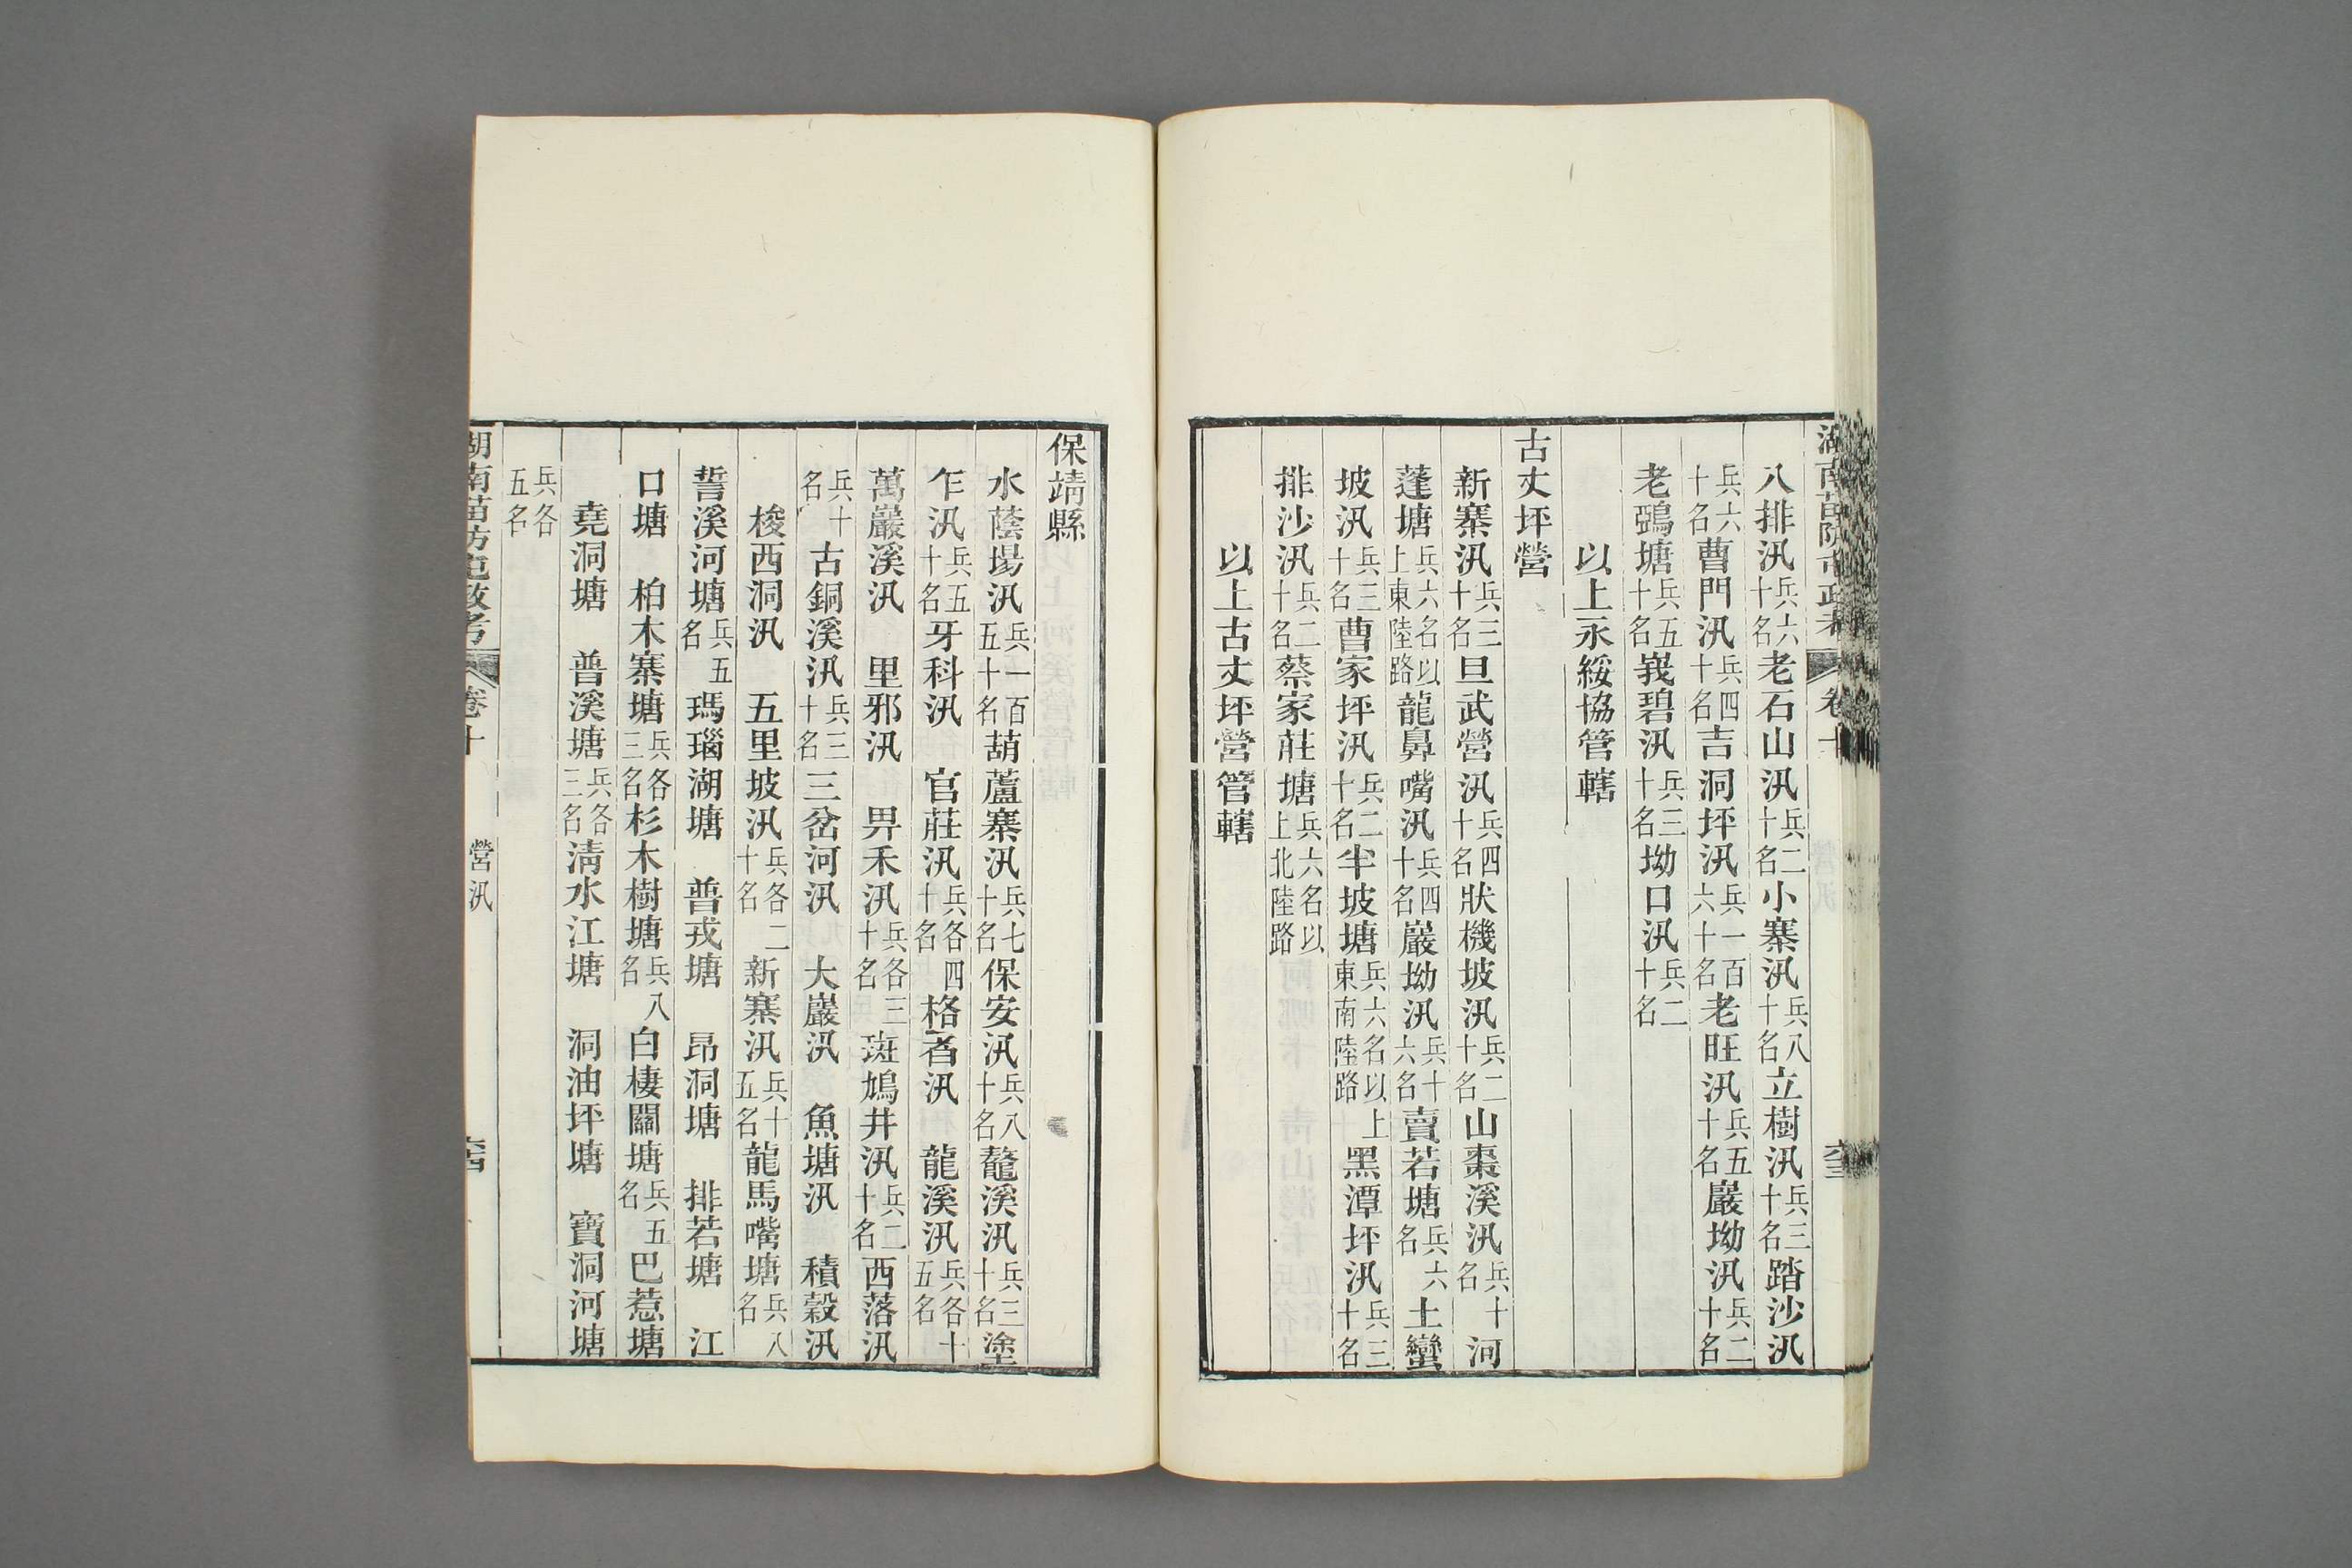 八排汛兵六十名老石山汛兵二十名小寨汛兵八十名立樹汛兵三十名踏沙汛
兵六十名曹門汛兵四十名吉洞坪汛兵一百六十名老旺汛兵五十名巖坳汛兵二十名
老鵶塘兵五十名峩碧汛兵三十名坳口汛兵二十名
以上永綏協管轄
古丈坪營
新寨汛兵三十名旦武營汛兵四十名狀機坡汛兵二十名山棗溪汛兵十名河
蓬塘兵六名以上東陸路龍鼻嘴汛兵四十名巖坳汛兵十六名賣若塘兵六名土蠻
坡汛兵三十名曹家坪汛兵二十名半坡塘兵六名以上東南陸路黑潭坪汛兵三十名
排沙汛兵二十名蔡家莊塘兵六名以上北陸路
以上古丈坪營管轄
保靖縣
水蔭場汛兵一百五十名葫蘆寨汛兵七十名保安汛兵八十名鼇溪汛兵三十名塗
乍汛兵五十名牙科汛 官莊汛兵各四十名格者汛 龍溪汛兵各十五名
萬巖溪汛 里邪汛 畀禾汛兵各三十名斑鳩井汛兵二十名西落汛
兵十名古銅溪汛兵三十名三岔河汛 大巖汛 魚塘汛 積穀汛
梭西洞汛 五里坡汛兵各二十名新寨汛兵十五名龍馬嘴塘兵八名
誓溪河塘兵五名瑪瑙湖塘 普戎塘 昂洞塘 排若塘 江
口塘 柏木寨塘兵各三名杉木樹塘兵八名白棲關塘兵五名巴惹塘
堯洞塘 普溪塘兵各三名清水江塘 洞油坪塘 寶洞河塘
兵各五名
湖南苗防屯政考 卷十 營汛 六十四